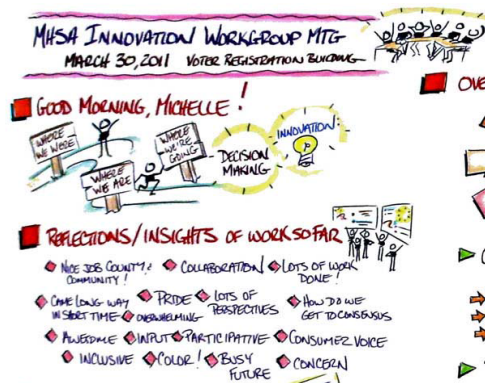 MHSA INNOVATION WORKGROUP MTG
MARCH 30, 2011 VOTER REGISTRATION BUILDING
OVE
GOOD MORNING, MICHELLE!
WHERE WE WERE
WHERE WE ARE
WHERE WE'RE GOING
DECISION MAKING
INNOVATION:
REFLECTIONS/INSIGHTS OF WORK SO FAR
NICE JOB COUNTY & COMMUNITY!
COLLABORATION
LOTS OF WORK DONE!
CAME LONG WAY IN SHORT TIME
PRIDE
OVERWHELMING
LOTS OF PERSPECTIVES
HOW DO WE GET TO CONSENSUS
AWESOME
INPUT
PARTICIPATIVE
CONSUMER VOICE
INCLUSIVE
COLOR!
BUSY FUTURE
CONCERN